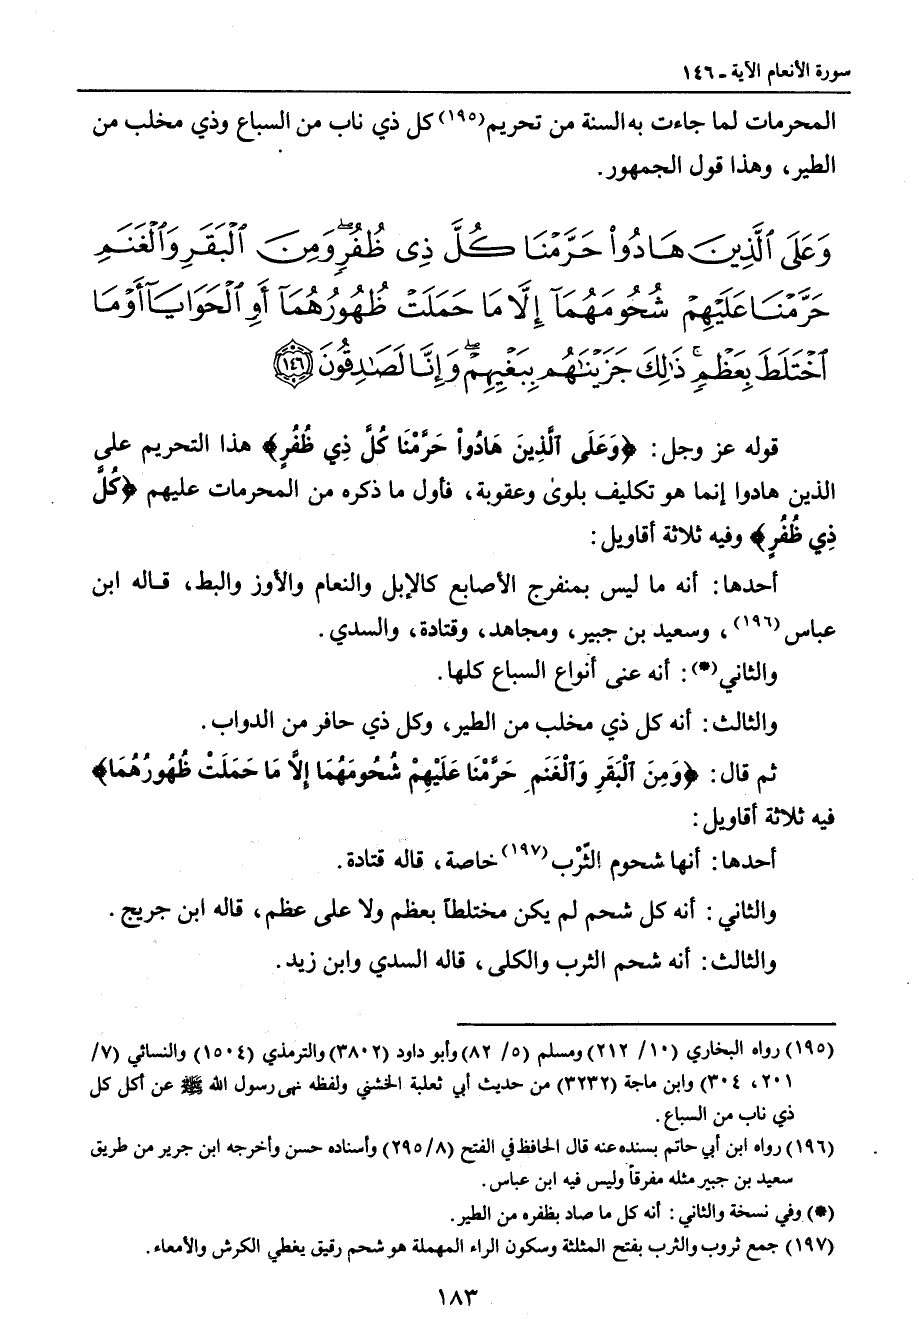 سورة الأنعام الآية - ١٤٦
المحرمات لما جاءت به السنة من تحريم(١٩٥) كل ذي ناب من السباع وذي مخلب من
الطير، وهذا قول الجمهور.
وَعَلَى ٱلَّذِينَ هَادُوا۟ حَرَّمْنَا كُلَّ ذِى ظُفُرٍۢ ۖ وَمِنَ ٱلْبَقَرِ وَٱلْغَنَمِ
حَرَّمْنَا عَلَيْهِمْ شُحُومَهُمَآ إِلَّا مَا حَمَلَتْ ظُهُورُهُمَآ أَوِ ٱلْحَوَايَآ أَوْ مَا
ٱخْتَلَطَ بِعَظْمٍۢ ۚ ذَٰلِكَ جَزَيْنَٰهُم بِبَغْيِهِمْ ۖ وَإِنَّا لَصَٰدِقُونَ ١٤٦
قوله عز وجل: ﴿وَعَلَى ٱلَّذِينَ هَادُواْ حَرَّمْنَا كُلَّ ذِي ظُفُرٍ﴾ هذا التحريم على
الذين هادوا إنما هو تكليف بلوى وعقوبة، فأول ما ذكره من المحرمات عليهم ﴿كُلَّ
ذِي ظُفُرٍ﴾ وفيه ثلاثة أقاويل:
أحدها: أنه ما ليس بمنفرج الأصابع كالإبل والنعام والأوز والبط، قاله ابن
عباس(١٩٦)، وسعيد بن جبير، ومجاهد، وقتادة، والسدي.
والثاني(*): أنه عنى أنواع السباع كلها.
والثالث: أنه كل ذي مخلب من الطير، وكل ذي حافر من الدواب.
ثم قال: ﴿وَمِنَ ٱلْبَقَرِ وَٱلْغَنَمِ حَرَّمْنَا عَلَيْهِمْ شُحُومَهُمَا إِلَّا مَا حَمَلَتْ ظُهُورُهُمَا﴾
فيه ثلاثة أقاويل:
أحدها: أنها شحوم الثَّرْب(١٩٧) خاصة، قاله قتادة.
والثاني: أنه كل شحم لم يكن مختلطاً بعظم ولا على عظم، قاله ابن جريج.
والثالث: أنه شحم الثرب والكلى، قاله السدي وابن زيد.
(١٩٥) رواه البخاري (١٠/ ٢١٢) ومسلم (٥/ ٨٢) وأبو داود (٣٨٠٢) والترمذي (١٥٠٤) والنسائي (٧/
٢٠١، ٣٠٤) وابن ماجة (٣٢٣٢) من حديث أبي ثعلبة الخشني ولفظه نهى رسول الله ﷺ عن أكل كل
ذي ناب من السباع.
(١٩٦) رواه ابن أبي حاتم بسنده عنه قال الحافظ في الفتح (٢٩٥/٨) وأسناده حسن وأخرجه ابن جرير من طريق
سعيد بن جبير مثله مفرقاً وليس فيه ابن عباس.
(*) وفي نسخة والثاني: أنه كل ما صاد بظفره من الطير.
(١٩٧) جمع ثروب والثرب بفتح المثلثة وسكون الراء المهملة هو شحم رقيق يغطي الكرش والأمعاء.
١٨٣